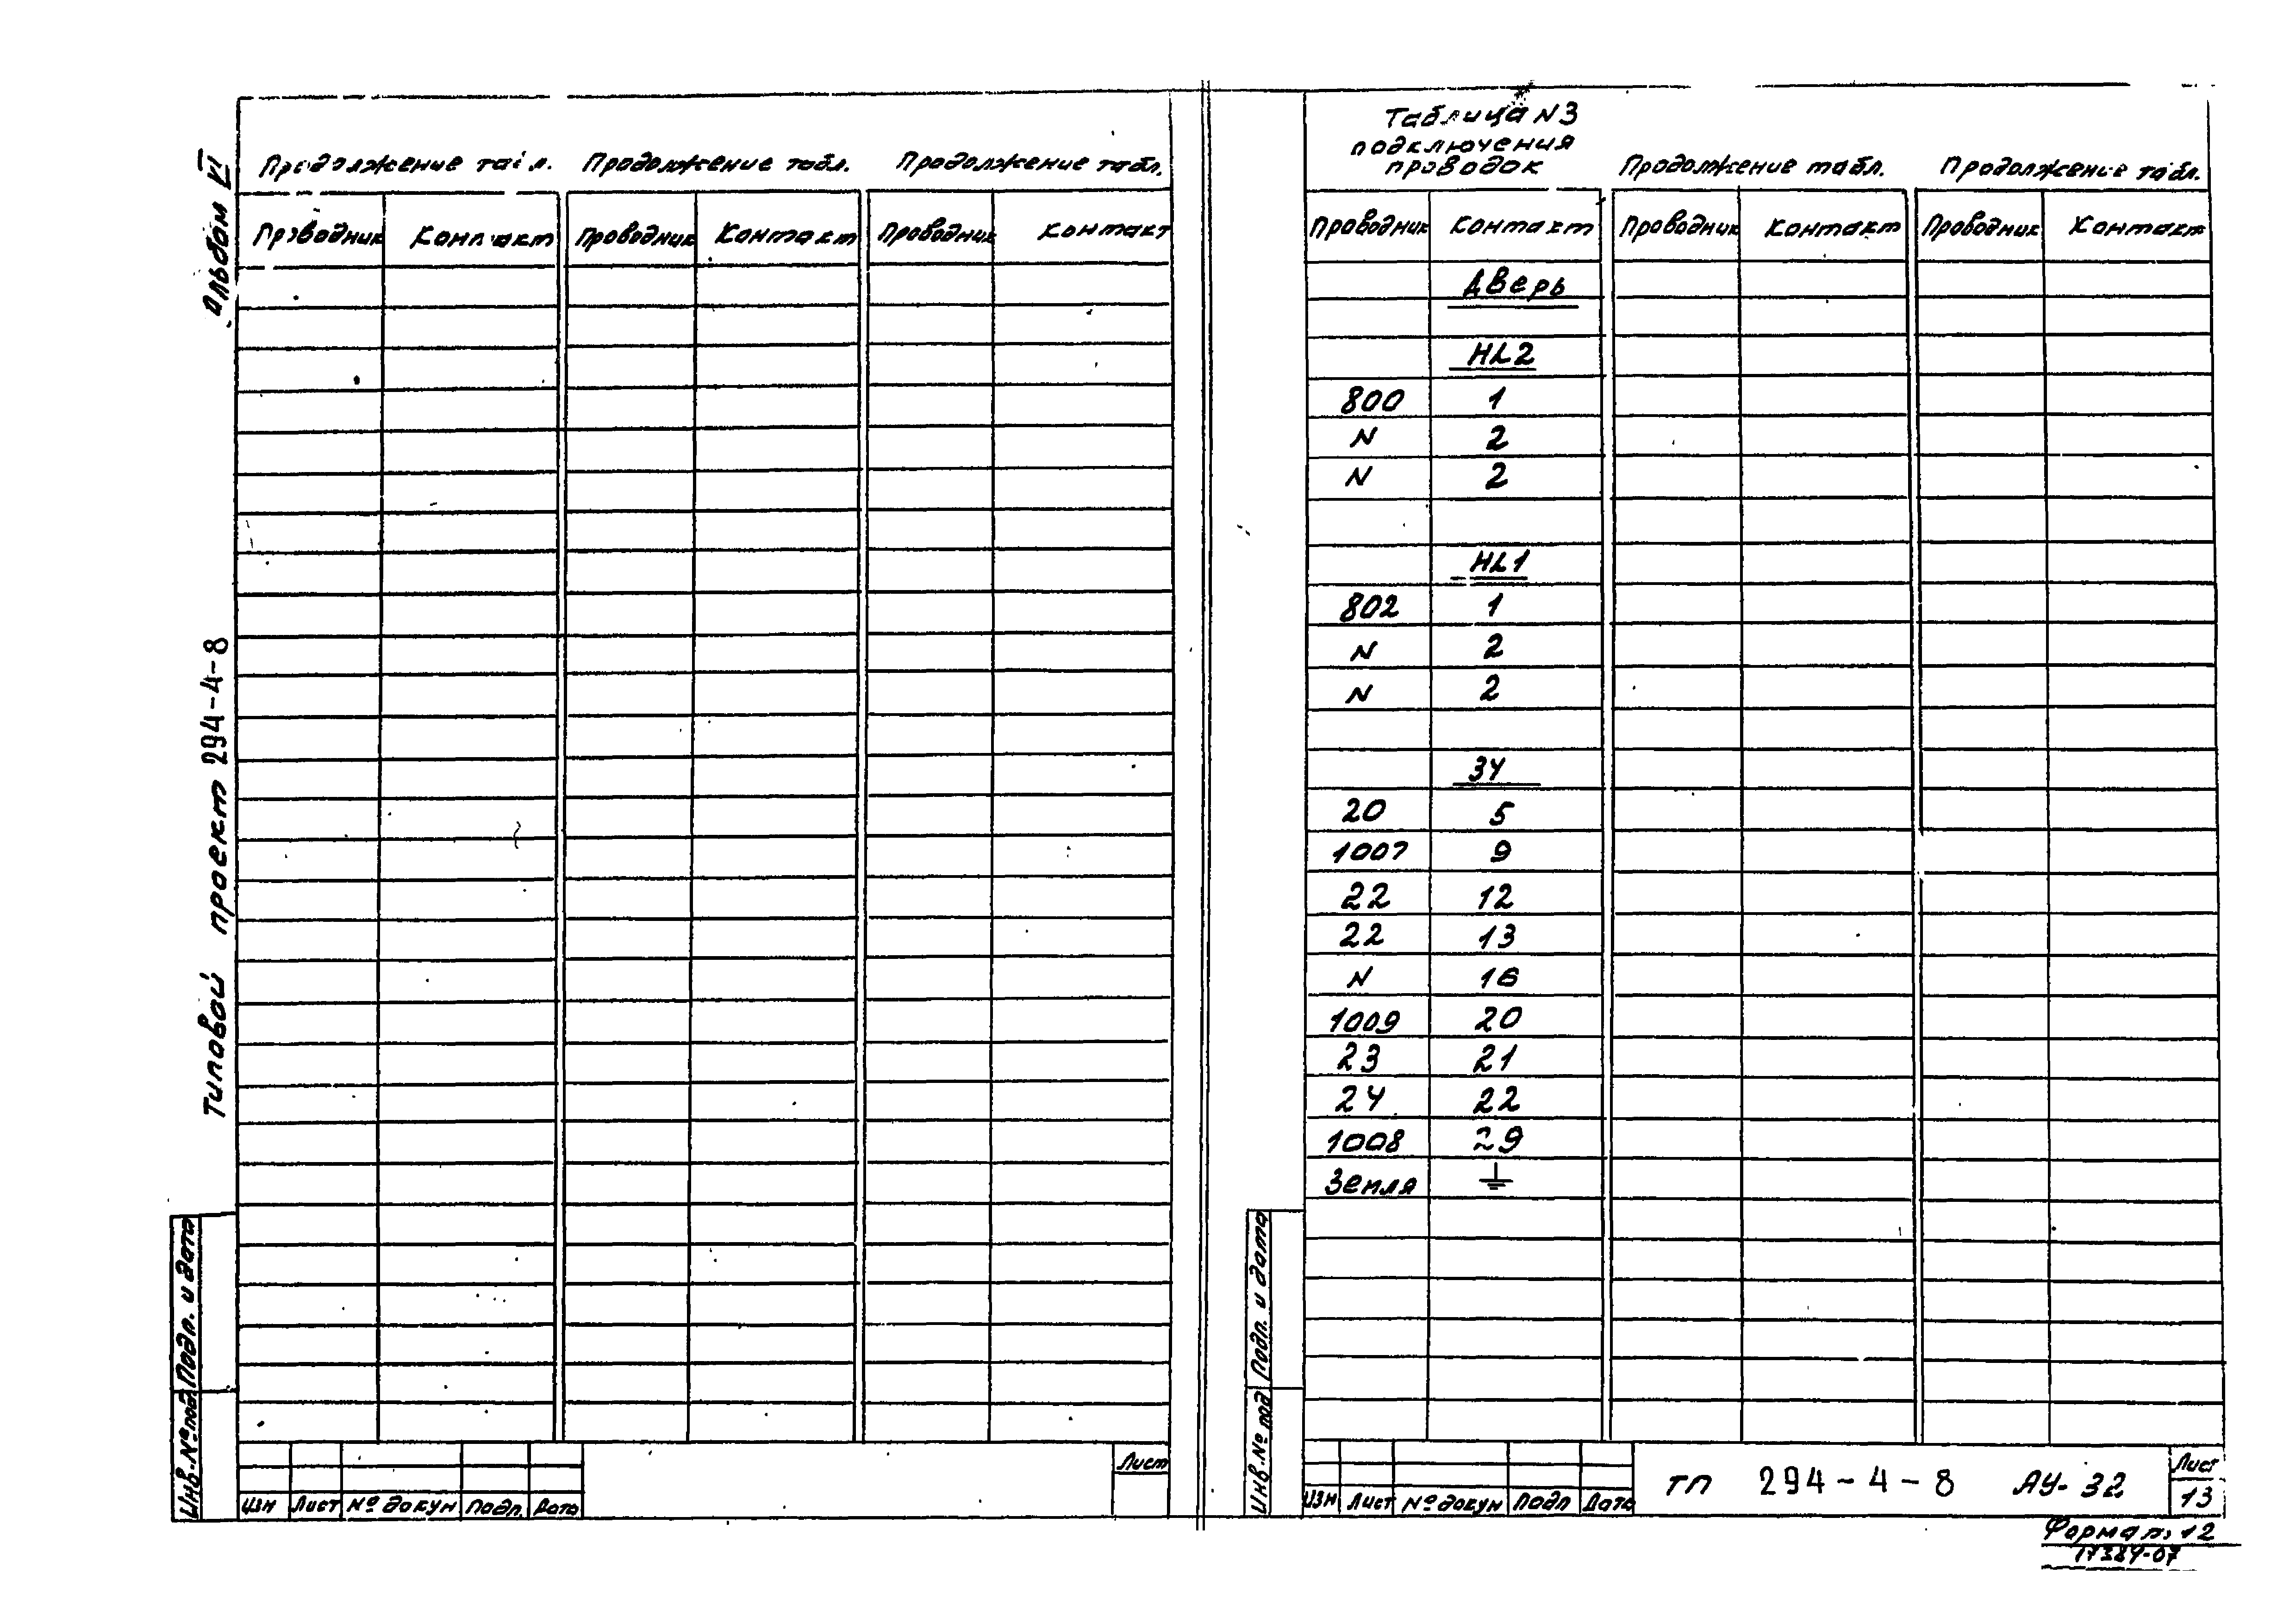 Альбом VI
Типовой проект 294-4-8
Продолжение табл. Продолжение табл. Продолжение табл.
Проводник Контакт Проводник Контакт Проводник Контакт
Подл. и дата
Инв. № под
Изм Лист № докум Подп. Дата
Лист
Таблица N3
подключения
проводок
Продолжение табл. Продолжение табл.
Проводник Контакт Проводник Контакт Проводник Контакт
Дверь
HL2
800 1
N 2
N 2
HL1
802 1
N 2
N 2
ЗУ
20 5
1007 9
22 12
22 13
N 16
1009 20
23 21
24 22
1008 29
Земля ⏚
Подп. и дата
Инв. № под
Изм Лист № докум Подп Дата
ТП 294-4-8 АУ-32
Лист
13
Формат 12
17384-07